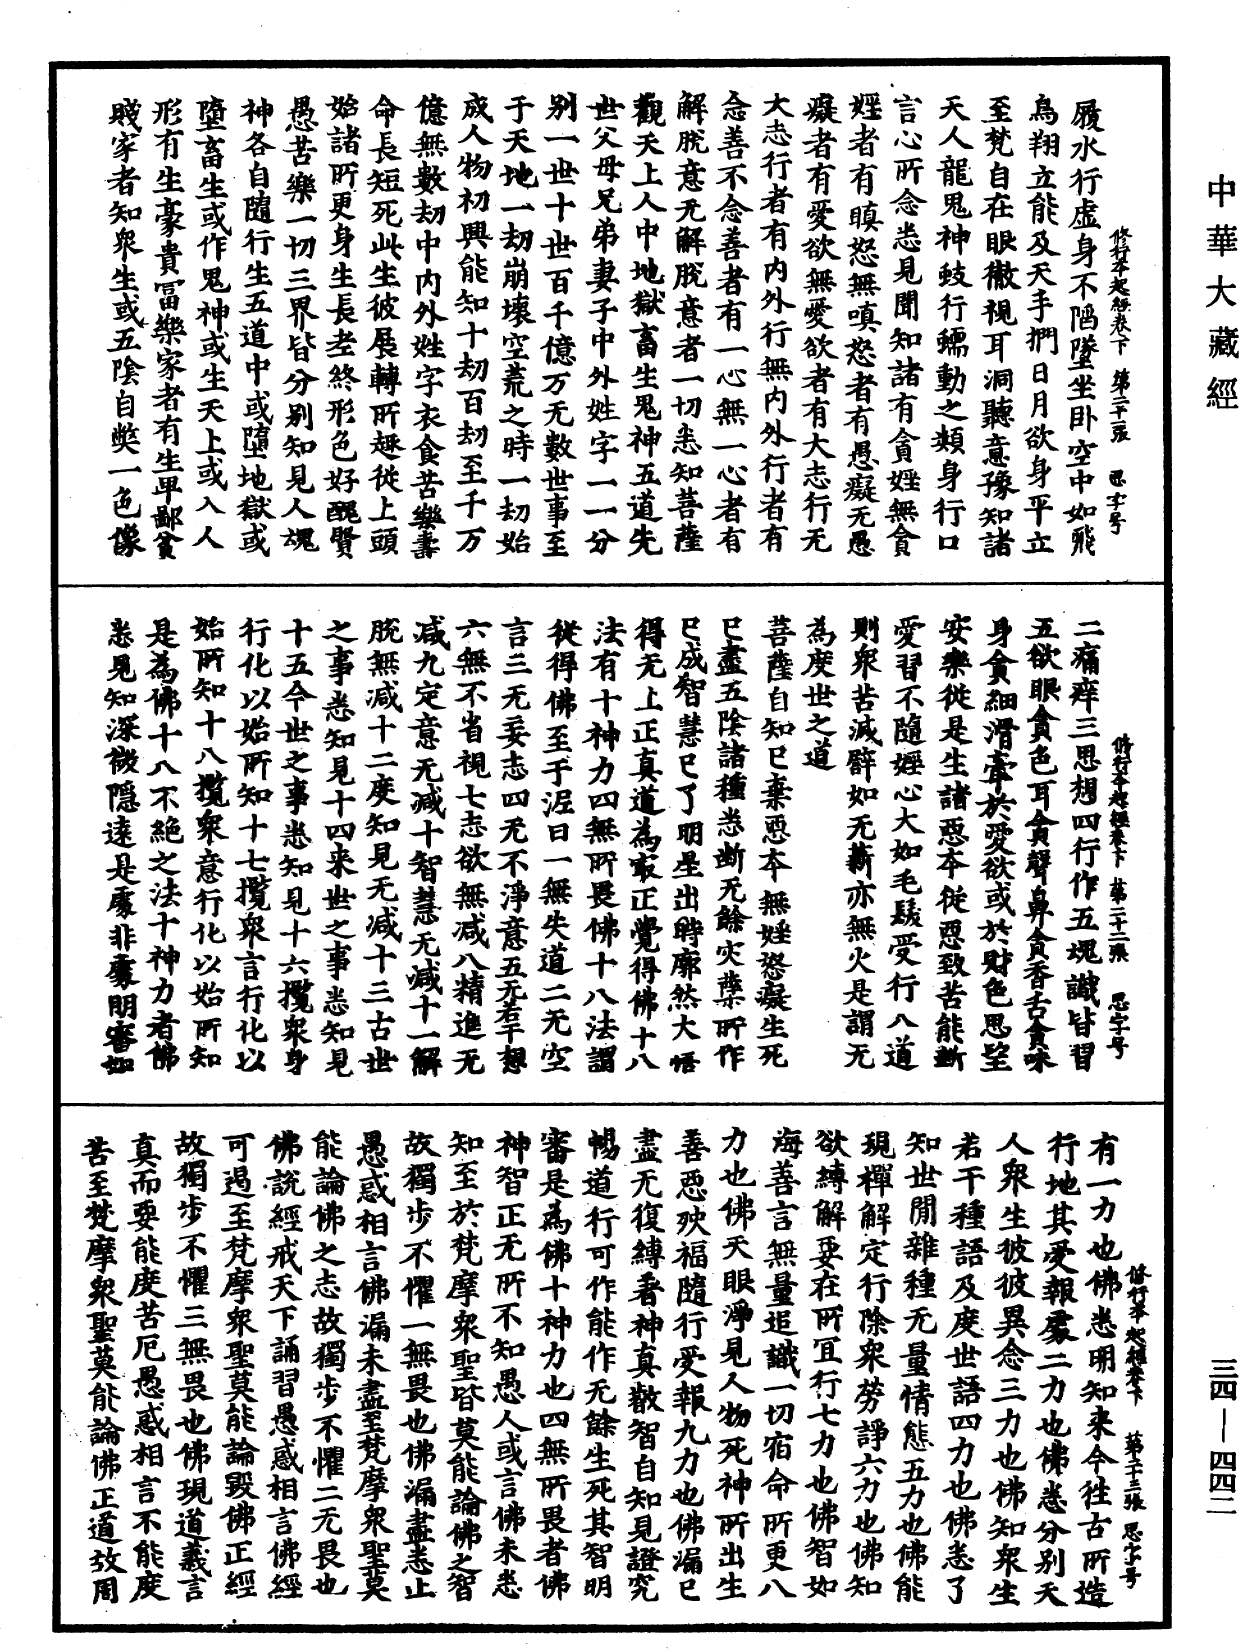 中華大藏經
修行本起經卷下　第二十一張　思字号
履水行虛身不陷墜坐卧空中如飛
鳥翔立能及天手捫日月欲身平立
至梵自在眼徹視耳洞聽意豫知諸
天人龍鬼神蚑行蠕動之類身行口
言心所念悉見聞知諸有貪婬無貪
婬者有瞋怒無嗔怒者有愚癡无愚
癡者有愛欲無愛欲者有大志行无
大志行者有内外行無内外行者有
念善不念善者有一心無一心者有
解脫意无解脫意者一切悉知菩薩
觀天上人中地獄畜生鬼神五道先
世父母兄弟妻子中外姓字一一分
别一世十世百千億万无數世事至
于天地一劫崩壞空荒之時一劫始
成人物初興能知十劫百劫至千万
億無數劫中内外姓字衣食苦樂壽
命長短死此生彼展轉所趣從上頭
始諸所更身生長老終形色好醜賢
愚苦樂一切三界皆分别知見人魂
神各自隨行生五道中或墮地獄或
墮畜生或作鬼神或生天上或入人
形有生豪貴富樂家者有生卑鄙貧
賤家者知衆生或五陰自弊一色像
修行本起經卷下　第二十二張　思字号
二痛痒三思想四行作五魂識皆習
五欲眼貪色耳貪聲鼻貪香舌貪味
身貪細滑牽於愛欲或於財色思望
安樂從是生諸惡本從惡致苦能斷
愛習不隨婬心大如毛髮受行八道
則衆苦滅譬如无薪亦無火是謂无
為度世之道
菩薩自知已棄惡本無婬怒癡生死
已盡五陰諸種悉斷无餘灾蘖所作
已成智慧已了明星出時廓然大悟
得无上正真道為㝡正覺得佛十八
法有十神力四無所畏佛十八法謂
從得佛至于泥日一無失道二无空
言三无妄志四无不淨意五无若干想
六無不省視七志欲無减八精進无
减九定意无减十智慧无减十一解
脫無减十二度知見无减十三古世
之事悉知見十四来世之事悉知見
十五今世之事悉知見十六攬衆身
行化以始所知十七攬衆言行化以
始所知十八攬衆意行化以始所知
是為佛十八不絶之法十神力者佛
悉見知深微隱遠是處非處明審如
修行本起經卷下　第二十三張　思字号
有一力也佛悉明知来今往古所造
行地其受報處二力也佛悉分别天
人衆生彼彼異念三力也佛知衆生
若干種語及度世語四力也佛悉了
知世閒雜種无量情態五力也佛能
現禪解定行除衆勞諍六力也佛知
欲縛解要在所宜行七力也佛智如
海善言無量追識一切宿命所更八
力也佛天眼淨見人物死神所出生
善惡殃福隨行受報九力也佛漏已
盡无復縛著神真叡智自知見證究
暢道行可作能作无餘生死其智明
審是為佛十神力也四無所畏者佛
神智正无所不知愚人或言佛未悉
知至於梵摩衆聖皆莫能論佛之智
故獨步不懼一無畏也佛漏盡悉止
愚惑相言佛漏未盡至梵摩衆聖莫
能論佛之志故獨步不懼二无畏也
佛說經戒天下誦習愚惑相言佛經
可遏至梵摩衆聖莫能論毀佛正經
故獨步不懼三無畏也佛現道義言
真而要能度苦厄愚惑相言不能度
苦至梵摩衆聖莫能論佛正道故周
三四—四四二